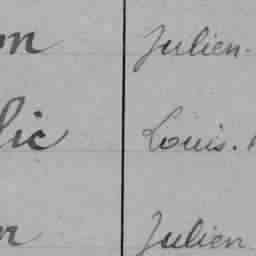 on Julien.
lic Louis.
n Julien